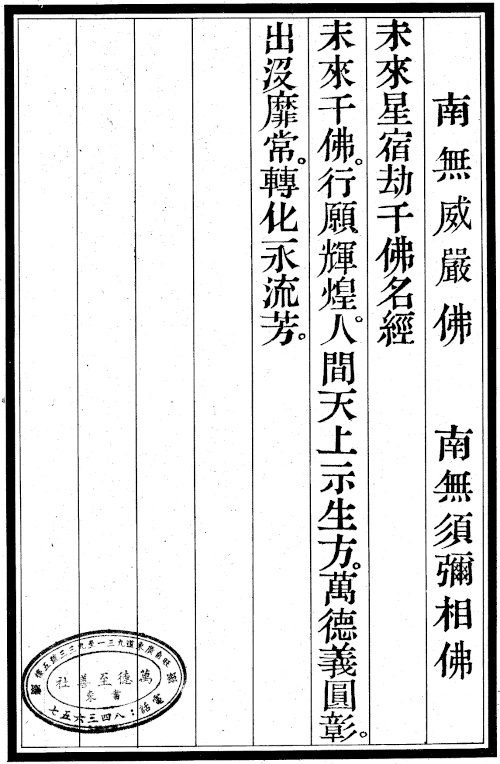 南無威嚴佛　南無須彌相佛
未來星宿劫千佛名經
未來千佛。行願輝煌。人間天上示生方。萬德義圓彰。
出沒靡常。轉化永流芳。
萬德至善社
電話：八四三六五七